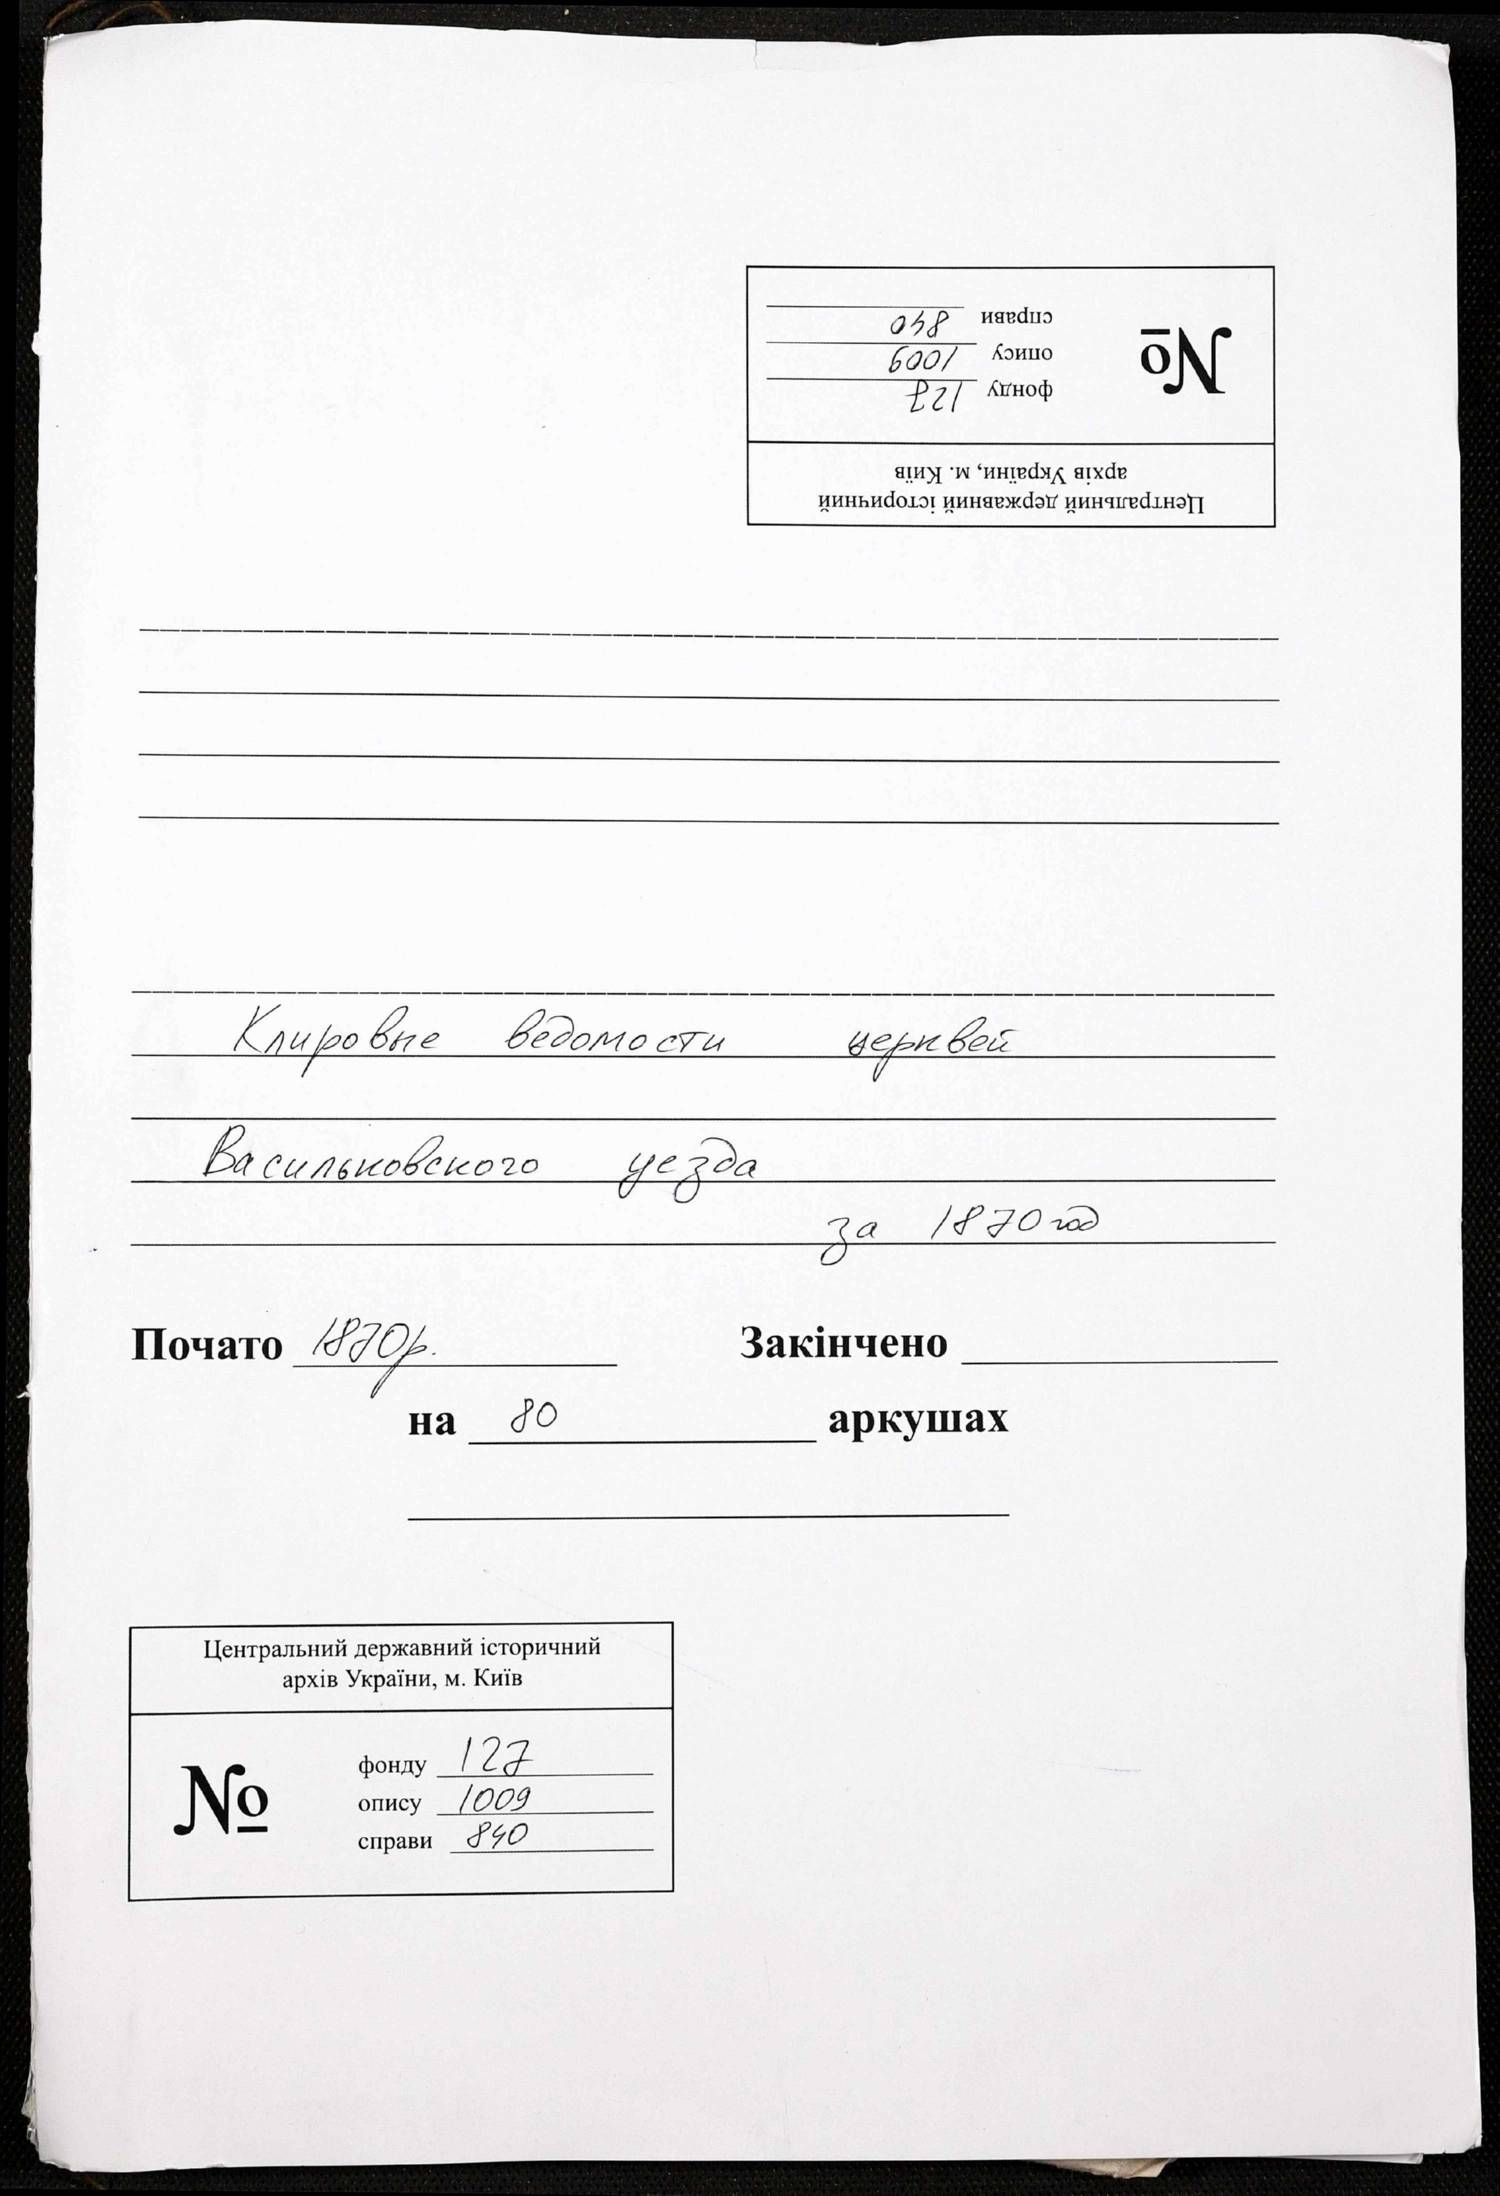 Центральний державний історичний
архів України, м. Київ
№
фонду 127
опису 1009
справи 840
Клировые ведомости церквей
Васильковского уезда
за 1870 год
Почато 1870р. Закінчено
на 80 аркушах
Центральний державний історичний
архів України, м. Київ
№
фонду 127
опису 1009
справи 840